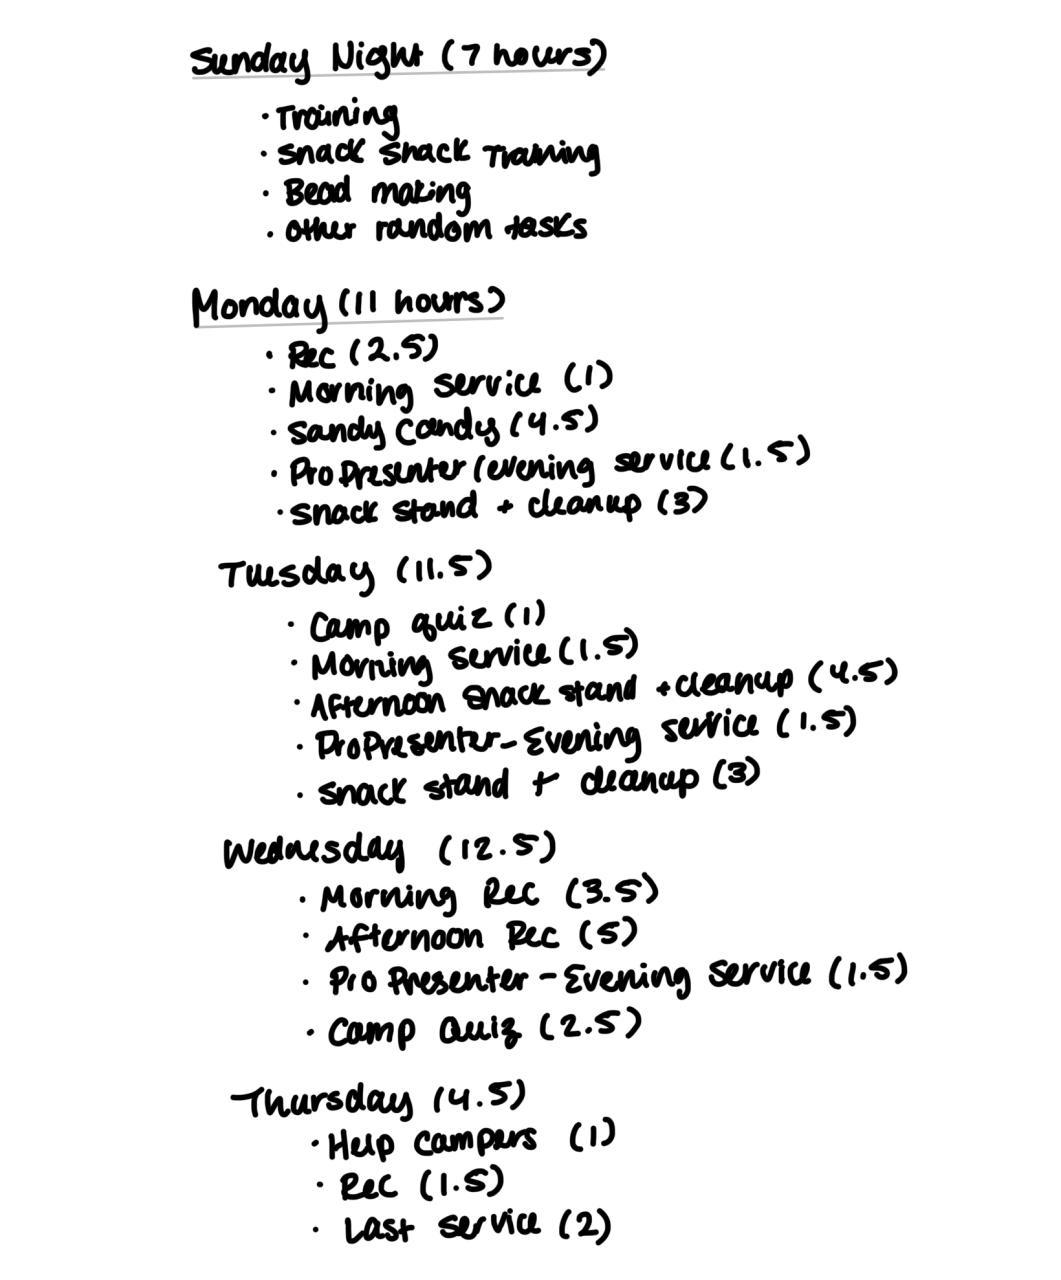 Sunday Night (7 hours)
· Training
· Snack Shack Training
· Bead making
· other random tasks
Monday (11 hours)
· Rec (2.5)
· Morning Service (1)
· Sandy Candy (4.5)
· ProPresenter (evening service (1.5)
· Snack stand + cleanup (3)
Tuesday (11.5)
· Camp quiz (1)
· Morning Service (1.5)
· Afternoon Snack stand + cleanup (4.5)
· ProPresenter - Evening service (1.5)
· Snack stand + cleanup (3)
Wednesday (12.5)
· Morning Rec (3.5)
· Afternoon Rec (5)
· Pro Presenter - Evening Service (1.5)
· Camp Quiz (2.5)
Thursday (4.5)
· Help campers (1)
· Rec (1.5)
· Last service (2)